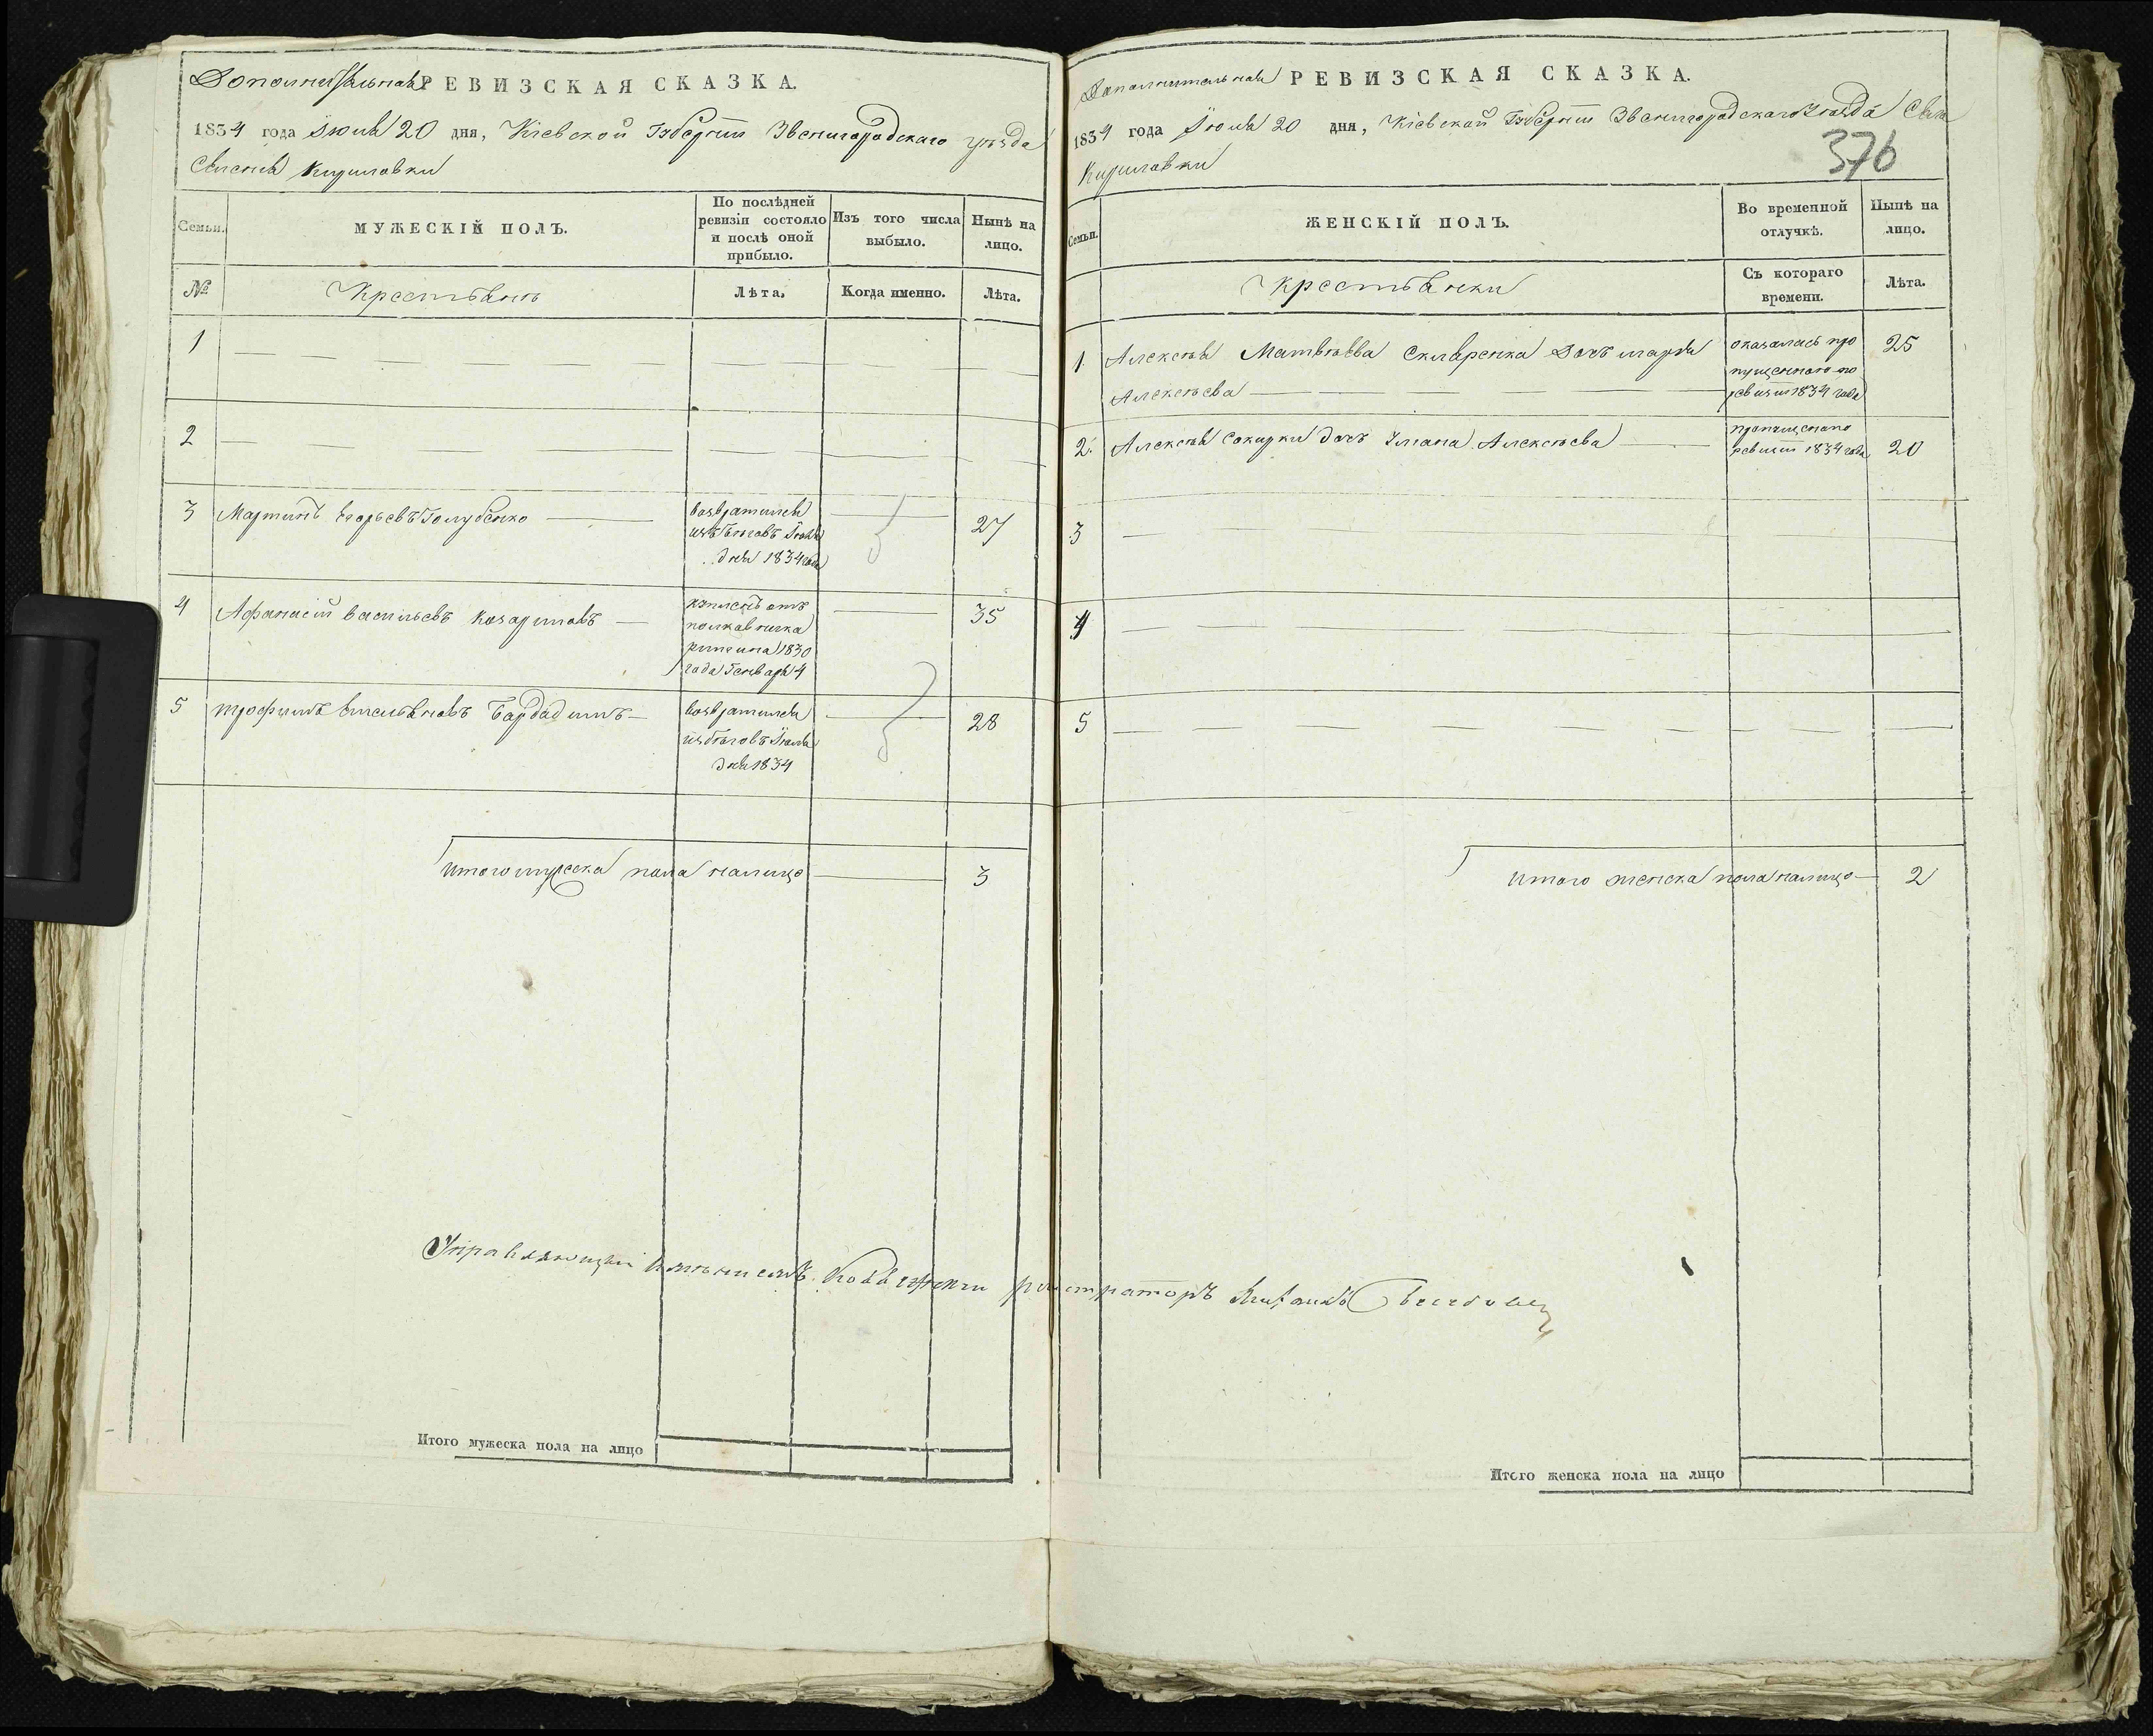 Дополнительная РЕВИЗСКАЯ СКАЗКА.
1834 года Іюля 20 дня, Кіевской Губерніи Звенигородскаго уѣзда
Селенія Кириловки
Семьи.
МУЖЕСКІЙ ПОЛЪ.
По послѣдней
ревизіи состояло
и послѣ оной
прибыло.
Изъ того числа
выбыло.
Нынѣ на
лицо.
№
Крестьянъ
Лѣта.
Когда именно.
Лѣта.
1
2
3 Мартинъ Егорьевъ Голубенко
возвратился
изъ бѣговъ Іюля
дня 1834 года
27
4 Афанасій Васильевъ
купленъ отъ
полковника
1830
года Генваря 4
35
5 Трофимъ Емельяновъ Бардадимъ
возвратился
изъ бѣговъ Іюля
дня 1834
28
Итого мужеска пола налицо 3
Управляющій имѣніемъ Коллежскій регистраторъ
Итого мужеска пола на лицо
Дополнительная РЕВИЗСКАЯ СКАЗКА.
1834 года Іюля 20 дня, Кіевской Губерніи Звенигородскаго уѣзда Села
Кириловки
376
Семьи.
ЖЕНСКІЙ ПОЛЪ.
Во временной
отлучкѣ.
Нынѣ на
лицо.
Крестьянки
Съ котораго
времени.
Лѣта.
1. Алексѣя Матвѣева Скляренка дочь Марія
Алексѣева
оказалась про
пущенною по
ревизіи 1834 года
25
2. Алексѣя Сокирки дочь Уліана Алексѣева
пропущена по
ревизіи 1834 года
20
3
4
5
Итого женска пола налицо 2
Итого женска пола на лицо